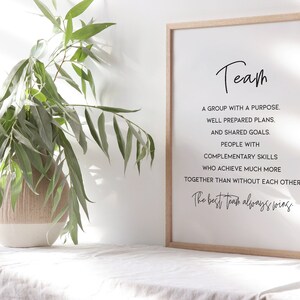 Team
A GROUP WITH A PURPOSE,
WELL PREPARED PLANS,
AND SHARED GOALS.
PEOPLE WITH
COMPLEMENTARY SKILLS
WHO ACHIEVE MUCH MORE
TOGETHER THAN WITHOUT EACH OTHER
The best team always wins